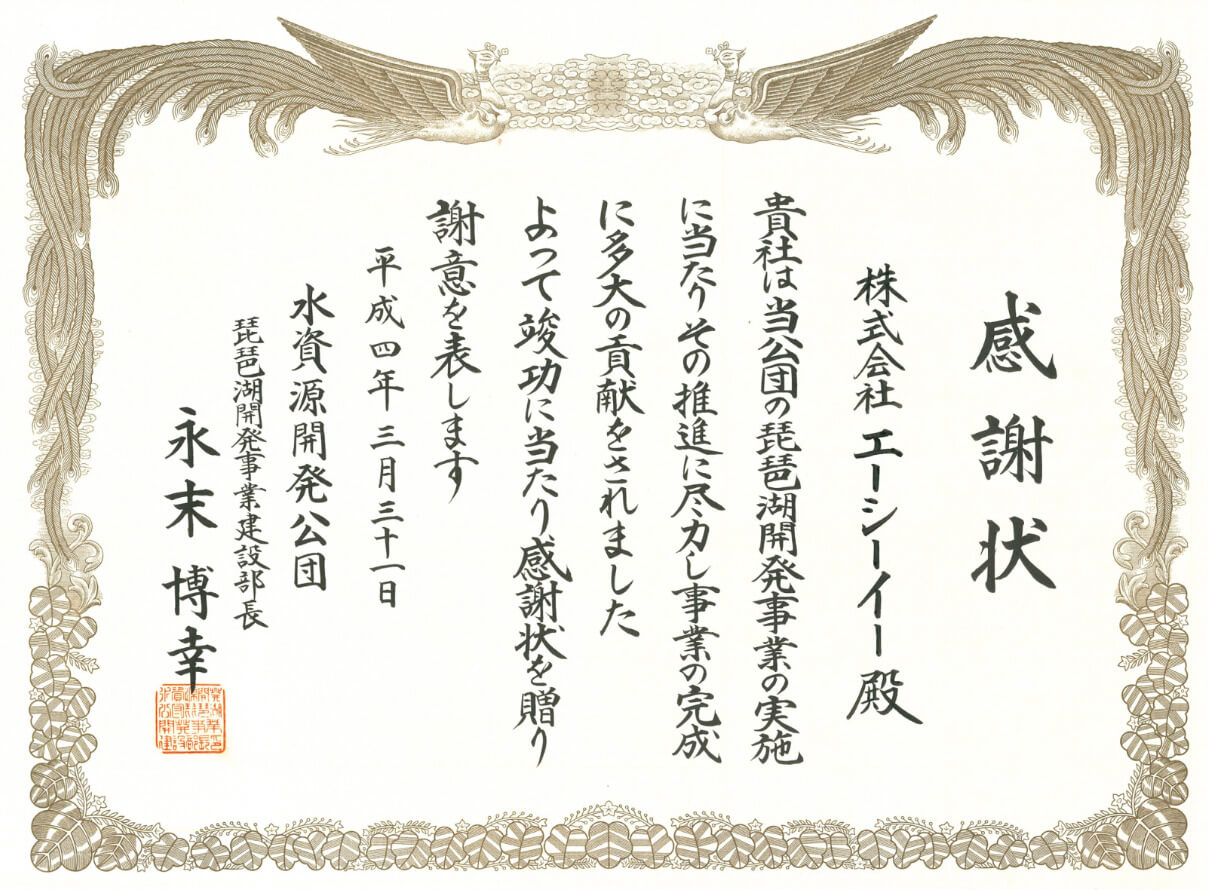 感謝状
株式会社エーシーイー殿
貴社は当公団の琵琶湖開発事業の実施
に当たりその推進に尽力し事業の完成
に多大の貢献をされました
よって竣功に当たり感謝状を贈り
謝意を表します
平成四年三月三十一日
水資源開発公団
琵琶湖開発事業建設部長
永末博幸